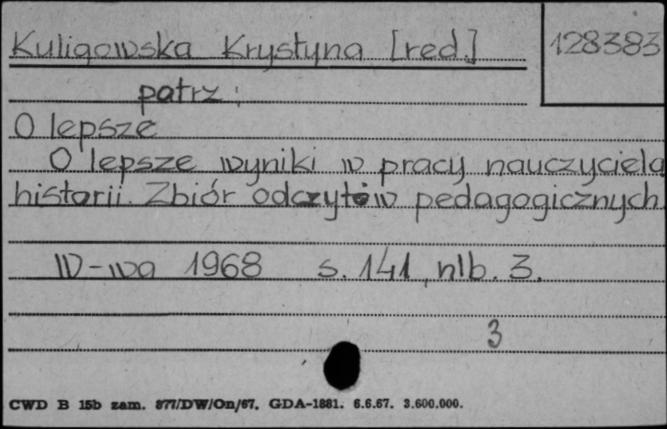 Kuligowska Krystyna [red.] 128383
patrz:
O lepsze
O lepsze wyniki w pracy nauczyciela
historii. Zbiór odczytów pedagogicznych.
W-wa 1968 s. 141, nlb. 3.
3
CWD B 15b zam. 877/DW/On/67. GDA-1881. 6.6.67. 3.600.000.